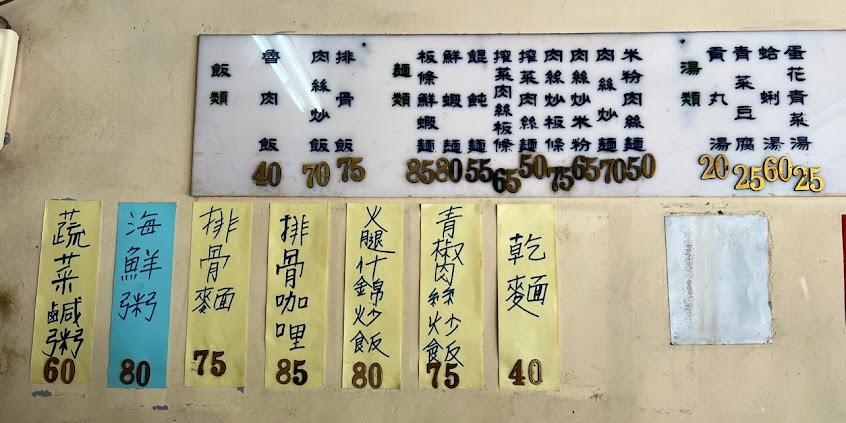 飯類
魯肉飯 40
肉絲炒飯 70
排骨飯 75
麵類
板條鮮蝦麵 85
鮮蝦麵 80
餛飩麵 55
榨菜肉絲板條 65
榨菜肉絲麵 50
肉絲炒板條 75
肉絲炒米粉 65
肉絲炒麵 70
米粉肉絲麵 50
湯類
貢丸湯 20
青菜豆腐 25
蛤蜊湯 60
蛋花青菜湯 25
蔬菜鹹粥 60
海鮮粥 80
排骨麵 75
排骨咖哩 85
火腿什錦炒飯 80
青椒肉絲炒飯 75
乾麵 40